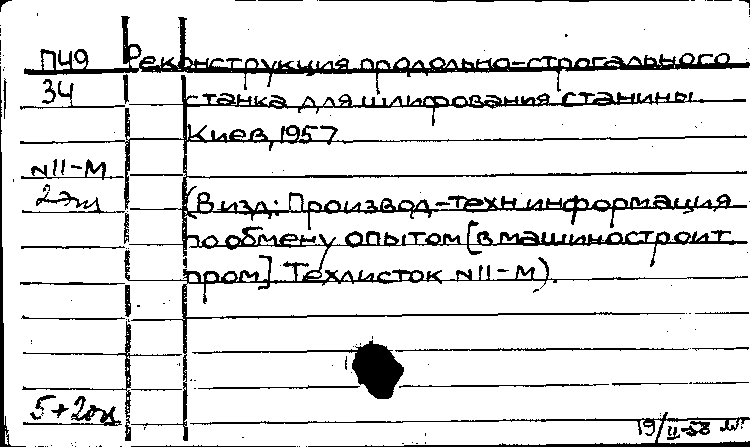 П49 Реконструкция продольно-строгального
34 станка для шлифования станины.
Киев, 1957
N11-М
2 эк (В изд: Производ-техн информация
по обмену опытом [в машиностроит
пром]. Техлисток N11-М).
5+2эк
19/II-58